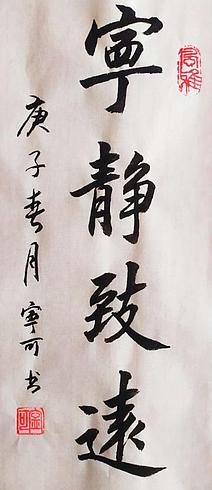 寧静致遠
庚子春月寧可书